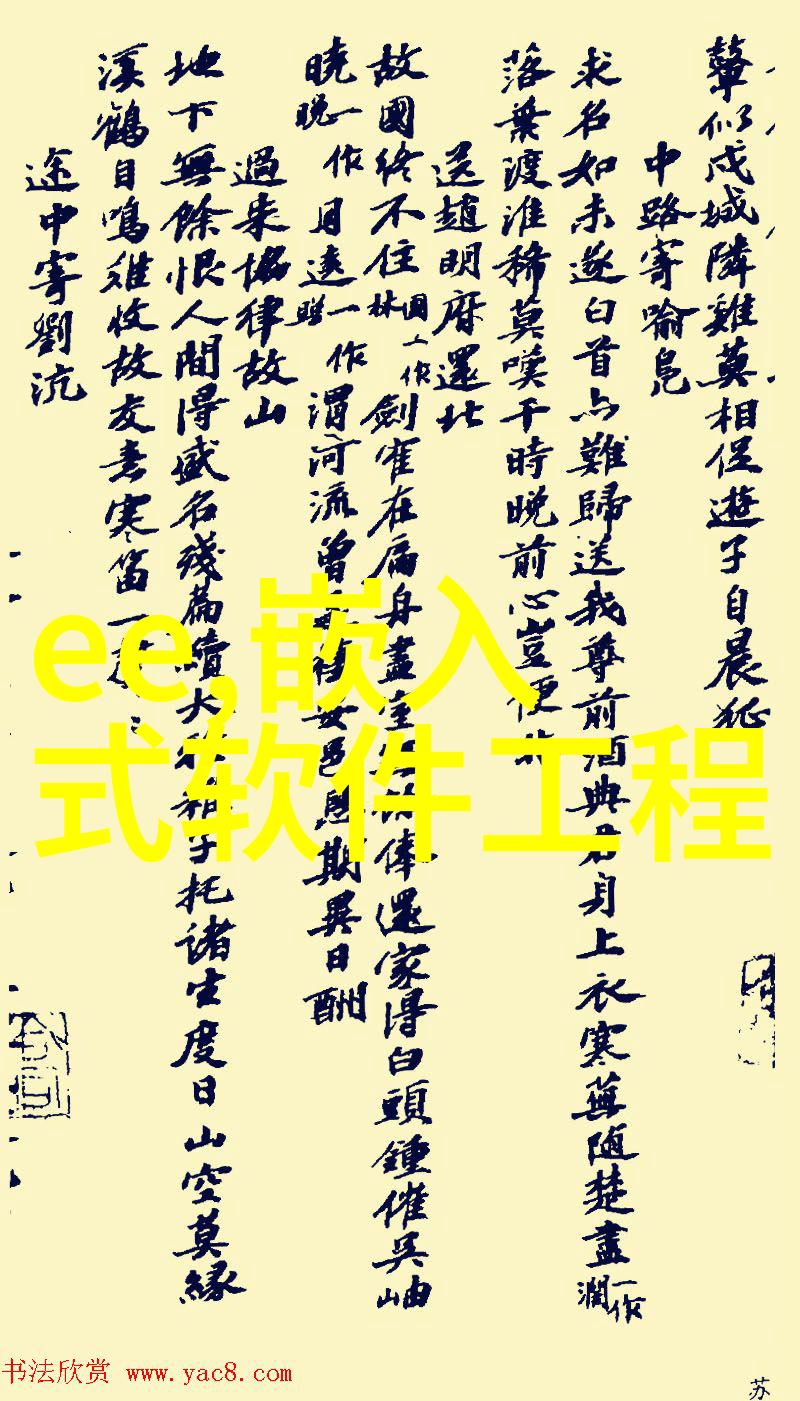 聲似戍城隣雞莫相促遊子自晨征
中路寄喻鳧
求名如未遂白首亦難歸送我尊前酒典君身上衣寒蕪隨楚盡
一作
澗
落葉渡淮稀莫嘆干時晚前心豈便非
送趙明府還北
故國終不住
國一作
林
劍寉在扁舟盡室
俸還家得白頭鍾催吳岫
曉
一作
晚
月遶
一作
渭河流曾
邑恩期異日酬
過朱協律故山
地下無餘恨人間得盛名殘篇續大雅
子托諸生度日山空莫緣
溪鶴自鳴難收故友意寒笛一
途中寄劉沆
ee,嵌入
式软件工程
书法欣赏 www.yac8.com
苏